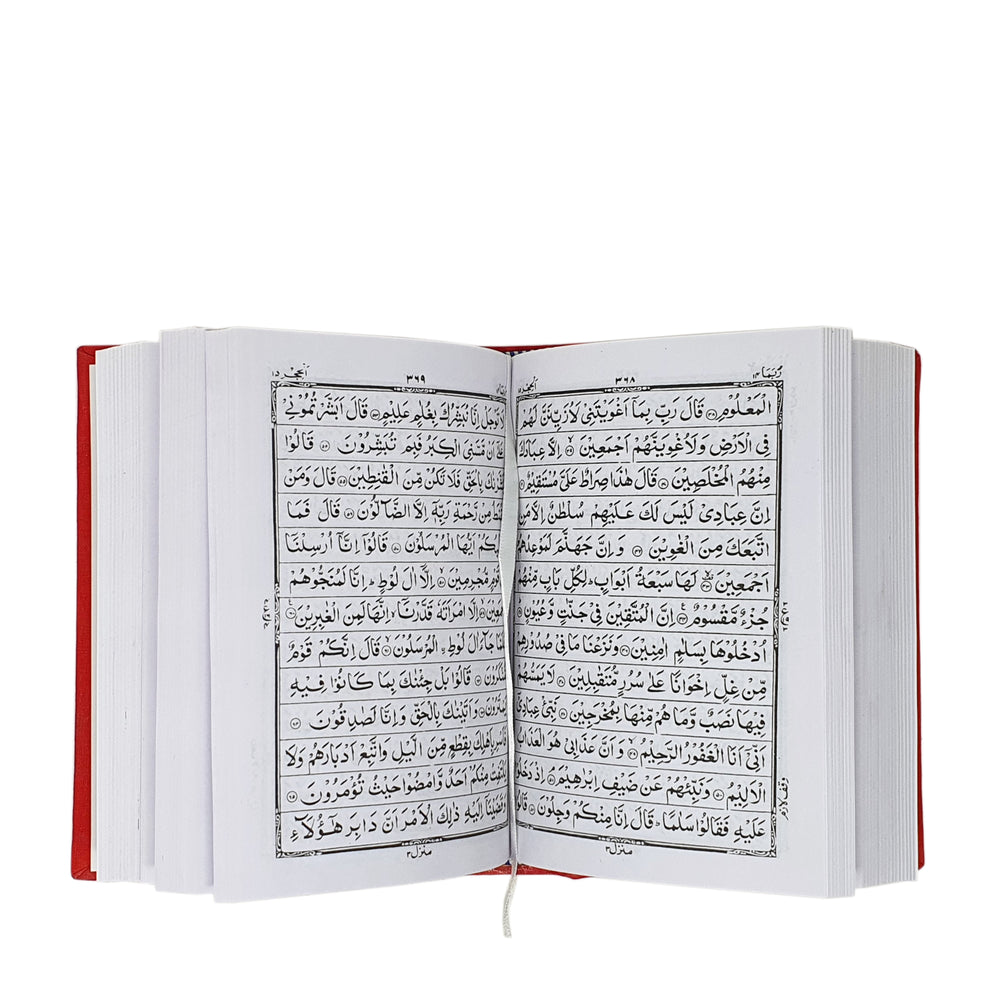 رُبَمَا ١٤ ٣٦٨ اَلْحِجْر ١٥
الْمَعْلُوْمِ ﴿٣٨﴾ قَالَ رَبِّ بِمَآ اَغْوَيْتَنِىْ لَاُزَيِّنَنَّ لَهُمْ
فِى الْاَرْضِ وَلَاُغْوِيَنَّهُمْ اَجْمَعِيْنَ ﴿٣٩﴾ اِلَّا عِبَادَكَ
مِنْهُمُ الْمُخْلَصِيْنَ ﴿٤٠﴾ قَالَ هٰذَا صِرَاطٌ عَلَىَّ مُسْتَقِيْمٌ ﴿٤١﴾
اِنَّ عِبَادِىْ لَيْسَ لَكَ عَلَيْهِمْ سُلْطٰنٌ اِلَّا مَنِ
اتَّبَعَكَ مِنَ الْغٰوِيْنَ ﴿٤٢﴾ وَاِنَّ جَهَنَّمَ لَمَوْعِدُهُمْ
اَجْمَعِيْنَ ﴿٤٣﴾ لَهَا سَبْعَةُ اَبْوَابٍ ؕ لِكُلِّ بَابٍ مِّنْهُمْ
جُزْءٌ مَّقْسُوْمٌ ﴿٤٤﴾ اِنَّ الْمُتَّقِيْنَ فِىْ جَنّٰتٍ وَّعُيُوْنٍ ﴿٤٥﴾
اُدْخُلُوْهَا بِسَلٰمٍ اٰمِنِيْنَ ﴿٤٦﴾ وَنَزَعْنَا مَا فِىْ صُدُوْرِهِمْ
مِّنْ غِلٍّ اِخْوَانًا عَلٰى سُرُرٍ مُّتَقٰبِلِيْنَ ﴿٤٧﴾ لَا يَمَسُّهُمْ
فِيْهَا نَصَبٌ وَّمَا هُمْ مِّنْهَا بِمُخْرَجِيْنَ ﴿٤٨﴾ نَبِّئْ عِبَادِىْٓ
اَنِّىْٓ اَنَا الْغَفُوْرُ الرَّحِيْمُ ﴿٤٩﴾ وَاَنَّ عَذَابِىْ هُوَ الْعَذَابُ
الْاَلِيْمُ ﴿٥٠﴾ وَنَبِّئْهُمْ عَنْ ضَيْفِ اِبْرٰهِيْمَ ﴿٥١﴾ اِذْ دَخَلُوْا
عَلَيْهِ فَقَالُوْا سَلٰمًا ؕ قَالَ اِنَّا مِنْكُمْ وَجِلُوْنَ ﴿٥٢﴾ قَالُوْا
منزل ٣
٣٦٩ اَلْحِجْر ١٥
لَا تَوْجَلْ اِنَّا نُبَشِّرُكَ بِغُلٰمٍ عَلِيْمٍ ﴿٥٣﴾ قَالَ اَبَشَّرْتُمُوْنِىْ
عَلٰٓى اَنْ مَّسَّنِىَ الْكِبَرُ فَبِمَ تُبَشِّرُوْنَ ﴿٥٤﴾ قَالُوْا
بِالْحَقِّ فَلَا تَكُنْ مِّنَ الْقٰنِطِيْنَ ﴿٥٥﴾ قَالَ وَمَنْ
مِنْ رَّحْمَةِ رَبِّهٖٓ اِلَّا الضَّآلُّوْنَ ﴿٥٦﴾ قَالَ فَمَا
اَيُّهَا الْمُرْسَلُوْنَ ﴿٥٧﴾ قَالُوْٓا اِنَّآ اُرْسِلْنَآ
قَوْمٍ مُّجْرِمِيْنَ ﴿٥٨﴾ اِلَّآ اٰلَ لُوْطٍ ؕ اِنَّا لَمُنَجُّوْهُمْ
اِلَّا امْرَاَتَهٗ قَدَّرْنَآ ۙ اِنَّهَا لَمِنَ الْغٰبِرِيْنَ ﴿٦٠﴾
جَآءَ اٰلَ لُوْطٍ ۨالْمُرْسَلُوْنَ ﴿٦١﴾ قَالَ اِنَّكُمْ قَوْمٌ
قَالُوْا بَلْ جِئْنٰكَ بِمَا كَانُوْا فِيْهِ
وَاَتَيْنٰكَ بِالْحَقِّ وَاِنَّا لَصٰدِقُوْنَ ﴿٦٤﴾
بِاَهْلِكَ بِقِطْعٍ مِّنَ الَّيْلِ وَاتَّبِعْ اَدْبَارَهُمْ وَلَا
مِنْكُمْ اَحَدٌ وَّامْضُوْا حَيْثُ تُؤْمَرُوْنَ ﴿٦٥﴾
وَقَضَيْنَآ اِلَيْهِ ذٰلِكَ الْاَمْرَ اَنَّ دَابِرَ هٰٓؤُلَآءِ
منزل ٣